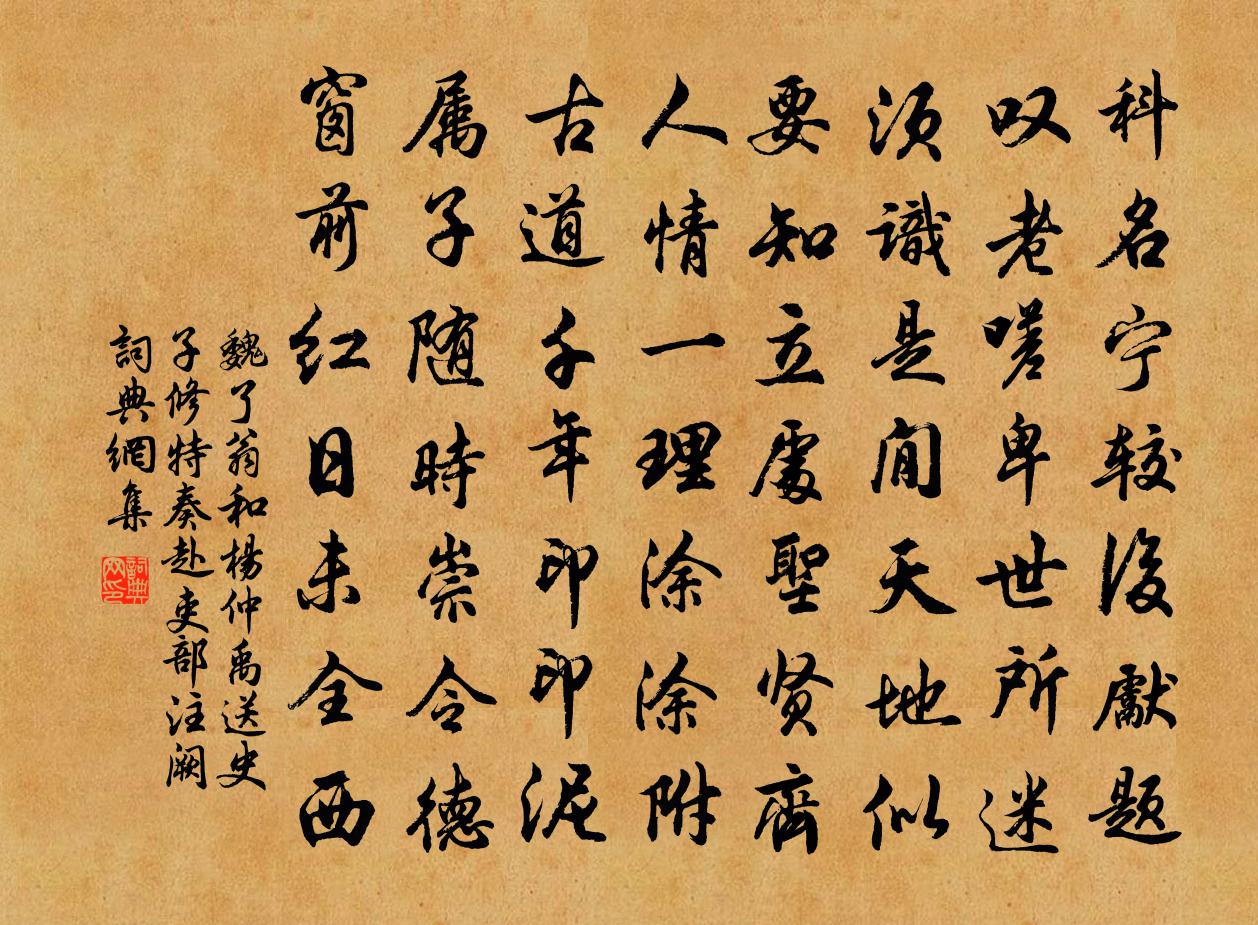 科名宁较後獻题
叹老嗟卑世所迷
须識是间天地似
要知立處聖贤齊
人情一理涂涂附
古道千年印印泥
属子随時崇令德
窗前红日未全西
魏了翁和楊仲禹送史
子修特奏赴吏部注阙
詞典網集
詞典网印